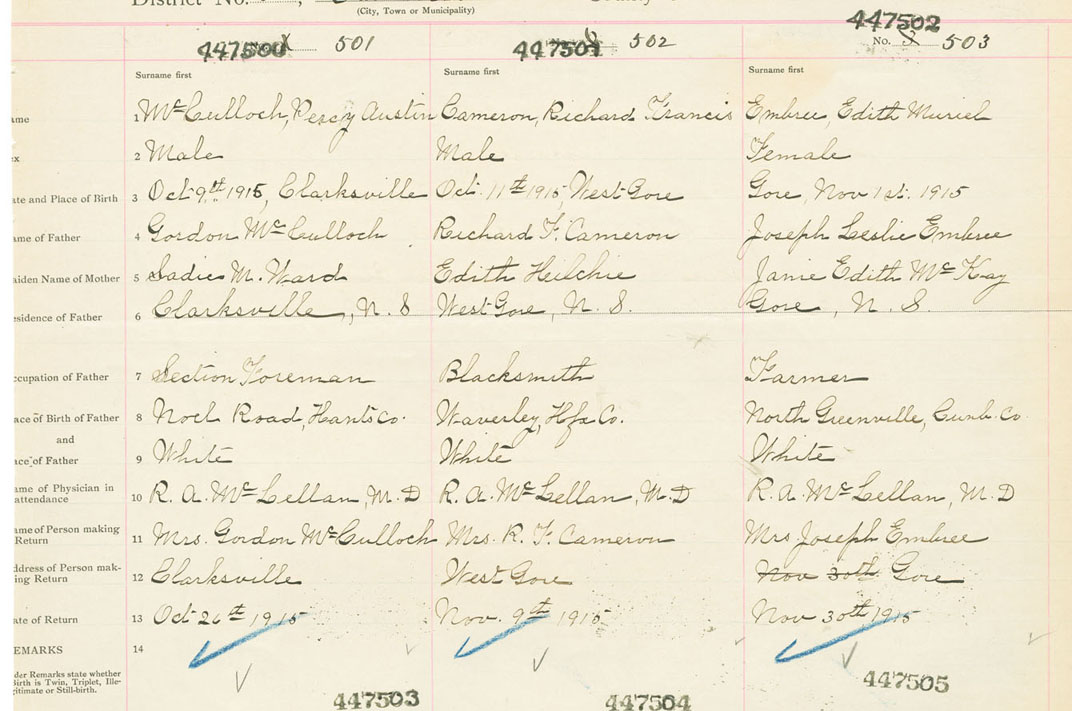 District No.
(City, Town or Municipality)
447500 501 447501 502 447502
No. 503
Surname first Surname first Surname first
ame 1 McCulloch, Percy Austin Cameron, Richard Francis Embree, Edith Muriel
ex 2 Male Male Female
ate and Place of Birth 3 Oct 9th 1915, Clarksville Oct. 11th 1915, West Gore Gore, Nov 1st. 1915
ame of Father 4 Gordon McCulloch Richard F. Cameron Joseph Leslie Embree
aiden Name of Mother 5 Sadie M. Ward Edith Heilchie Janie Edith McKay
esidence of Father 6 Clarksville, N. S West Gore, N. S. Gore, N. S.
ccupation of Father 7 Section Foreman Blacksmith Farmer
ace of Birth of Father 8 Noel Road, Hants Co. Waverley, Hfx Co. North Greenville, Cumb. Co
and
ace of Father 9 White White White
ame of Physician in
attendance 10 R. A. McLellan, M. D R. A. McLellan, M. D R. A. McLellan, M. D
ame of Person making
Return 11 Mrs. Gordon McCulloch Mrs. R. F. Cameron Mrs. Joseph Embree
ddress of Person mak-
ing Return 12 Clarksville West Gore Nov 30th Gore
ate of Return 13 Oct 26th 1915 Nov. 9th 1915 Nov 30th 1915
EMARKS 14
der Remarks state whether
Birth is Twin, Triplet, Ille-
gitimate or Still-birth.
447503 447504 447505